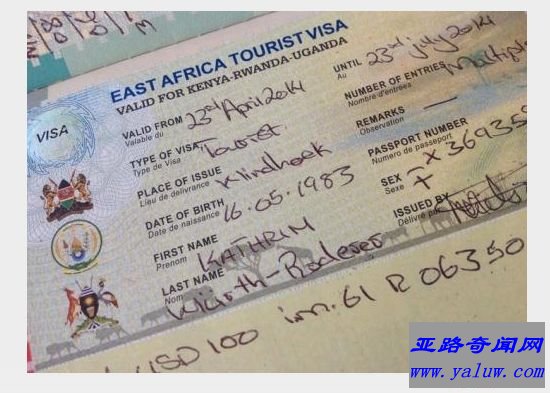 EAST AFRICA TOURIST VISA
VALID FOR KENYA-RWANDA-UGANDA
VISA
VALID FROM 23rd April 2014 UNTIL 23rd July 2014
Valable du Au
TYPE OF VISA Tourist NUMBER OF ENTRIES Multiple
Type de Visa Nombre d'entrées
PLACE OF ISSUE REMARKS —
Lieu de delivrance Observation
DATE OF BIRTH 16.05.1983 PASSPORT NUMBER
Date de naissance Numero de passeport
FIRST NAME KATHRIN SEX F
Prenom Sexe
LAST NAME ISSUED BY
Nom Délivré par
USD 100 im. 61 R 06350
亚路奇闻网
www.yaluw.com